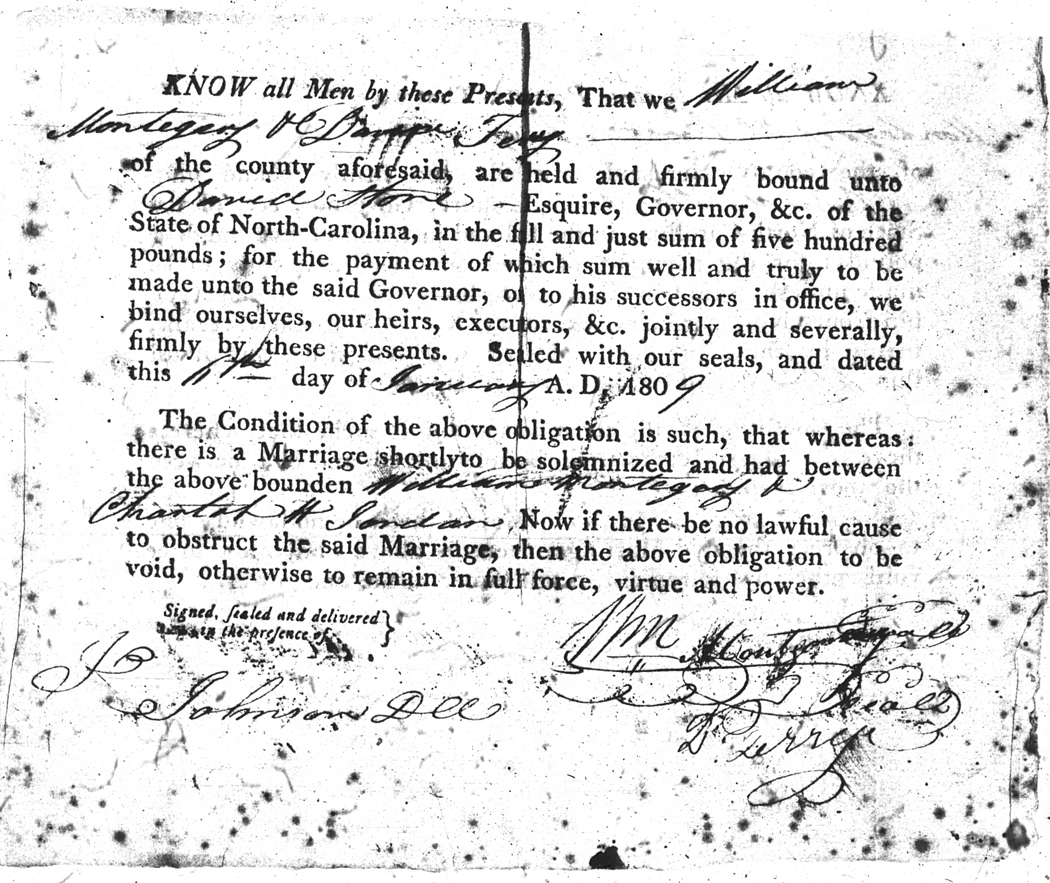 KNOW all Men by these Presents, That we William
Montegary &
of the county aforesaid, are held and firmly bound unto
David Stone Esquire, Governor, &c. of the
State of North-Carolina, in the full and just sum of five hundred
pounds; for the payment of which sum well and truly to be
made unto the said Governor, or to his successors in office, we
bind ourselves, our heirs, executors, &c. jointly and severally,
firmly by these presents. Sealed with our seals, and dated
this day of January A. D. 1809
The Condition of the above obligation is such, that whereas
there is a Marriage shortlyto be solemnized and had between
the above bounden William Montegary &
H Jordan Now if there be no lawful cause
to obstruct the said Marriage, then the above obligation to be
void, otherwise to remain in full force, virtue and power.
Signed, sealed and delivered
in the presence of
Wm Montgomery
Johnson
Perry